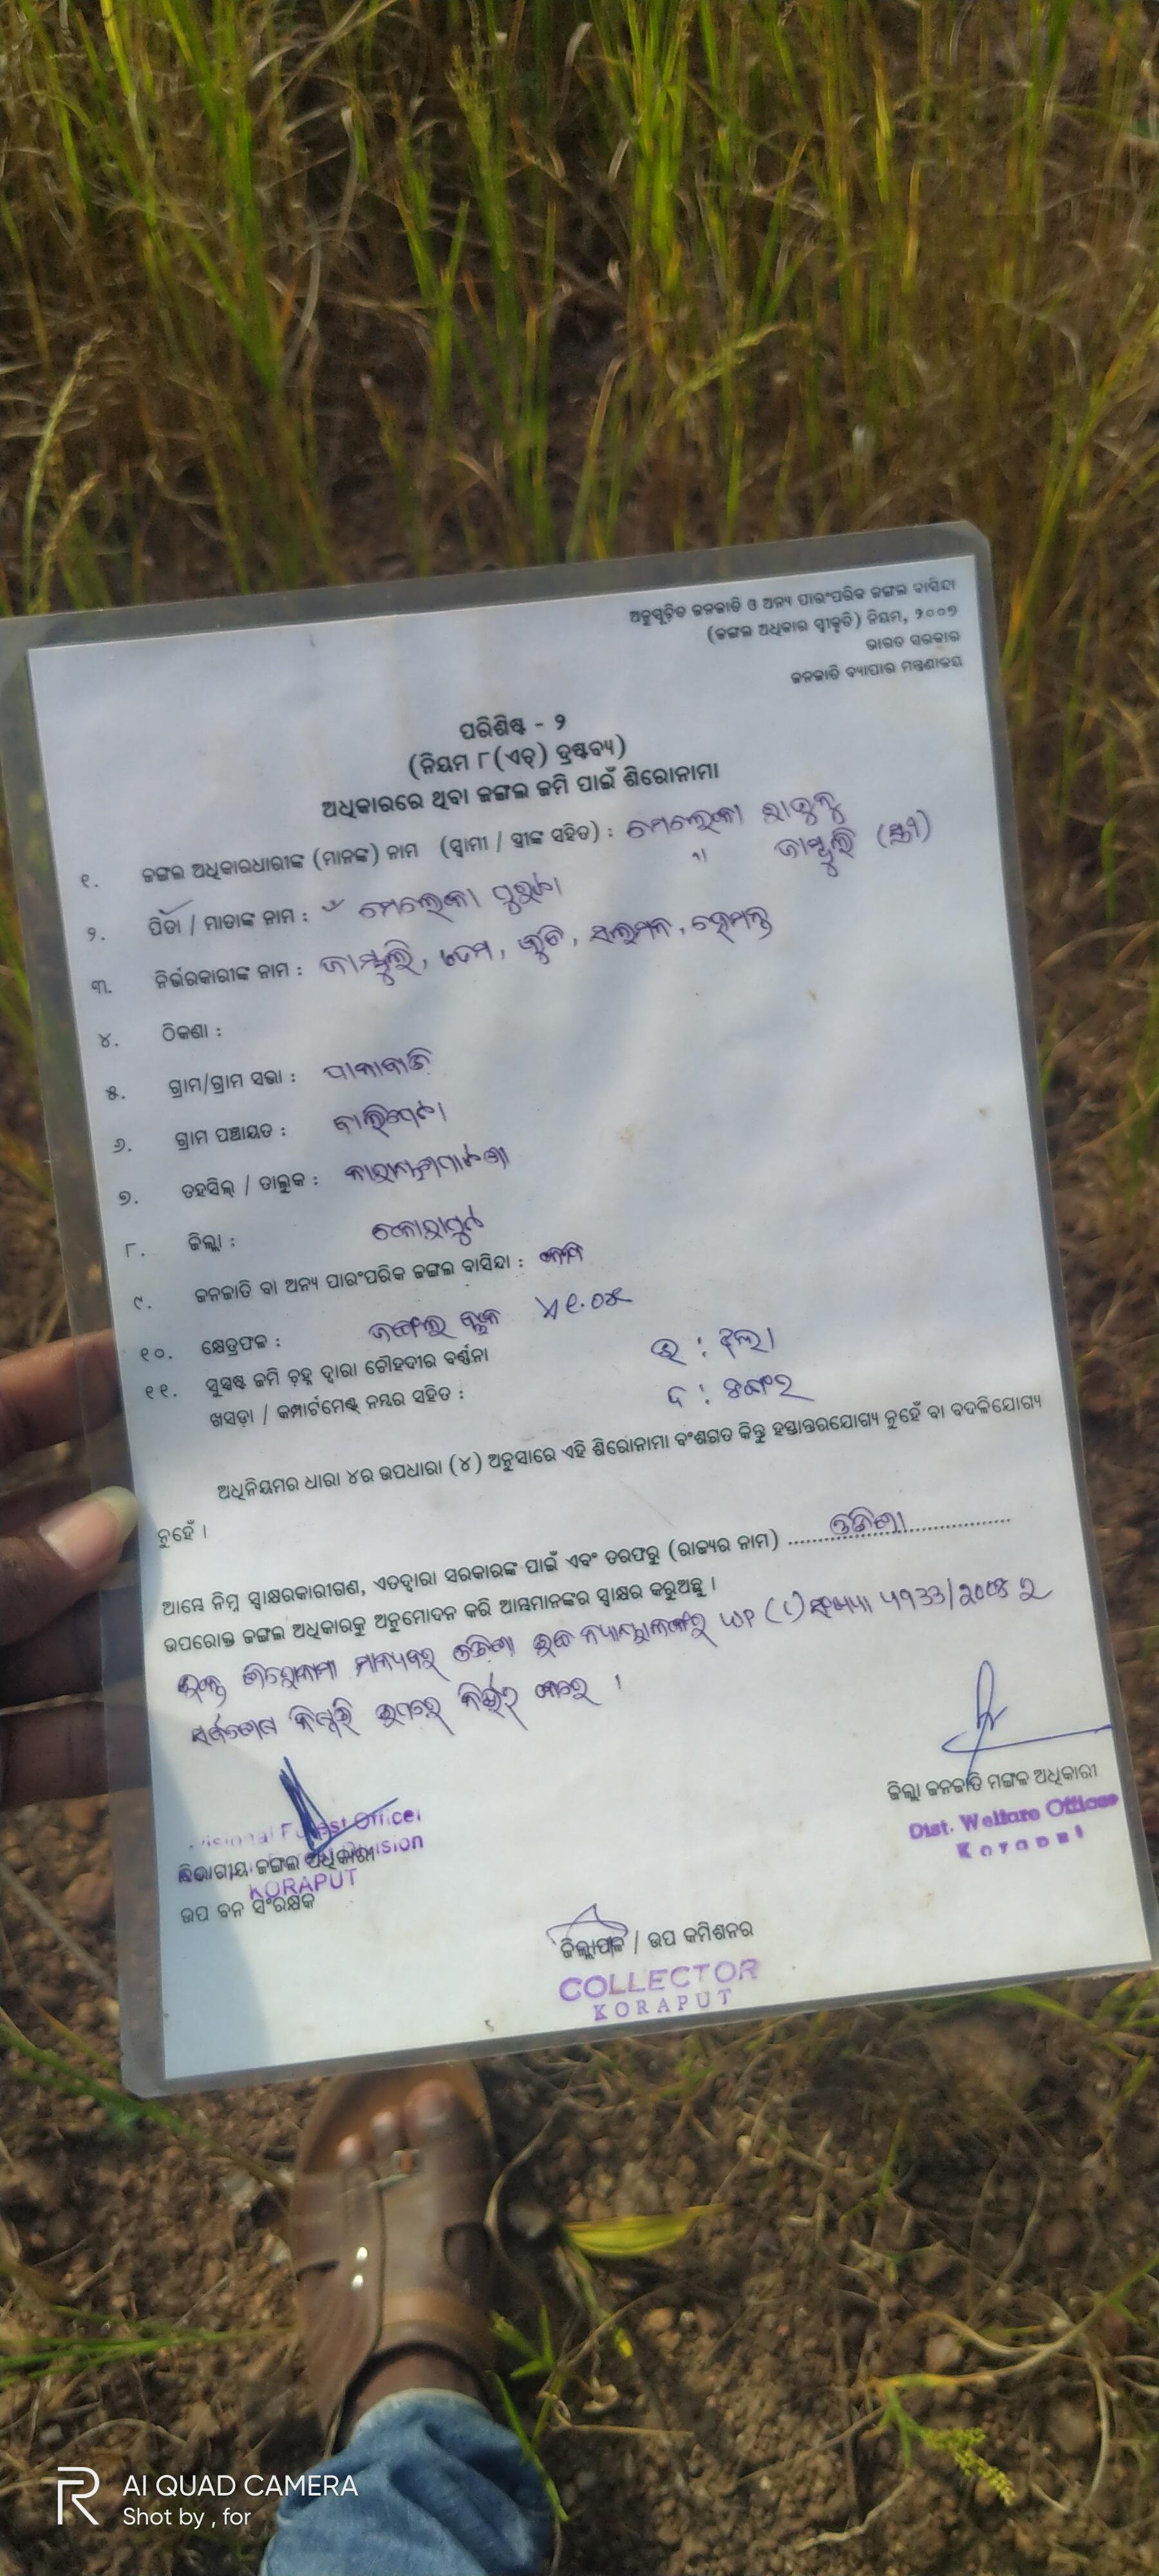 ଅନୁସୂଚିତ ଜନଜାତି ଓ ଅନ୍ୟ ପାରଂପରିକ ଜଙ୍ଗଲ ବାସିନ୍ଦା
(ଜଙ୍ଗଲ ଅଧିକାର ସ୍ୱୀକୃତି) ନିୟମ, ୨୦୦୭
ଭାରତ ସରକାର
ଜନଜାତି ବ୍ୟାପାର ମନ୍ତ୍ରଣାଳୟ
ପରିଶିଷ୍ଟ - ୨
(ନିୟମ ୮(ଏଚ୍) ଦ୍ରଷ୍ଟବ୍ୟ)
ଅଧିକାରରେ ଥିବା ଜଙ୍ଗଲ ଜମି ପାଇଁ ଶିରୋନାମା
୧. ଜଙ୍ଗଲ ଅଧିକାରଧାରୀଙ୍କ (ମାନଙ୍କ) ନାମ (ସ୍ୱାମୀ / ସ୍ତ୍ରୀଙ୍କ ସହିତ) : ମେଲେକା
" ଜାମ୍ଭୁଲି (ସ୍ତ୍ରୀ)
୨. ପିତା / ମାତାଙ୍କ ନାମ : ମେଲେକା
୩. ନିର୍ଭରକାରୀଙ୍କ ନାମ : ଜାମ୍ଭୁଲି, ହେମନ୍ତ
୪. ଠିକଣା :
୫. ଗ୍ରାମ/ଗ୍ରାମ ସଭା :
୬. ଗ୍ରାମ ପଞ୍ଚାୟତ : ବାଲିପେଟା
୭. ତହସିଲ୍ / ତାଲୁକ : ନାରାୟଣପାଟଣା
୮. ଜିଲ୍ଲା : କୋରାପୁଟ
୯. ଜନଜାତି ବା ଅନ୍ୟ ପାରଂପରିକ ଜଙ୍ଗଲ ବାସିନ୍ଦା :
୧୦. କ୍ଷେତ୍ରଫଳ : ଜଙ୍ଗଲ ବ୍ଲକ
୧୧. ସୁସ୍ପଷ୍ଟ ଜମି ଚିହ୍ନ ଦ୍ୱାରା ଚୌହଦୀର ବର୍ଣ୍ଣନା
ଉ : ନାଳା
ଖସଡ଼ା / କମ୍ପାର୍ଟମେଣ୍ଟ ନମ୍ବର ସହିତ :
ଦ : ଡଙ୍ଗର
ଅଧିନିୟମର ଧାରା ୪ର ଉପଧାରା (୪) ଅନୁସାରେ ଏହି ଶିରୋନାମା ବଂଶଗତ କିନ୍ତୁ ହସ୍ତାନ୍ତରଯୋଗ୍ୟ ନୁହେଁ ବା ବଦଳିଯୋଗ୍ୟ
ନୁହେଁ ।
ଆମ୍ଭେ ନିମ୍ନ ସ୍ୱାକ୍ଷରକାରୀଗଣ, ଏତଦ୍ୱାରା ସରକାରଙ୍କ ପାଇଁ ଏବଂ ତରଫରୁ (ରାଜ୍ୟର ନାମ) ଓଡିଶା
ଉପରୋକ୍ତ ଜଙ୍ଗଲ ଅଧିକାରକୁ ଅନୁମୋଦନ କରି ଆମ୍ଭମାନଙ୍କର ସ୍ୱାକ୍ଷର କରୁଅଛୁ ।
ଉକ୍ତ ଶିରୋନାମା ମାନ୍ୟବର ଓଡିଶା ଉଚ୍ଚ ନ୍ୟାୟାଳୟଙ୍କର WP (C) ସଂଖ୍ୟା ୪୨33/2008 ର
ସର୍ବଶେଷ ନିଷ୍ପତ୍ତି ଉପରେ ନିର୍ଭର କରେ ।
Forest Officer
ବିଭାଗୀୟ ଜଙ୍ଗଲ ଅଧିକାରୀ
Division
KORAPUT
ଉପ ବନ ସଂରକ୍ଷକ
ଜିଲ୍ଲା ଜନଜାତି ମଙ୍ଗଳ ଅଧିକାରୀ
Dist. Welfare Officer
Koraput
ଜିଲ୍ଲାପାଳ / ଉପ କମିଶନର
COLLECTOR
KORAPUT
AI QUAD CAMERA
Shot by , for